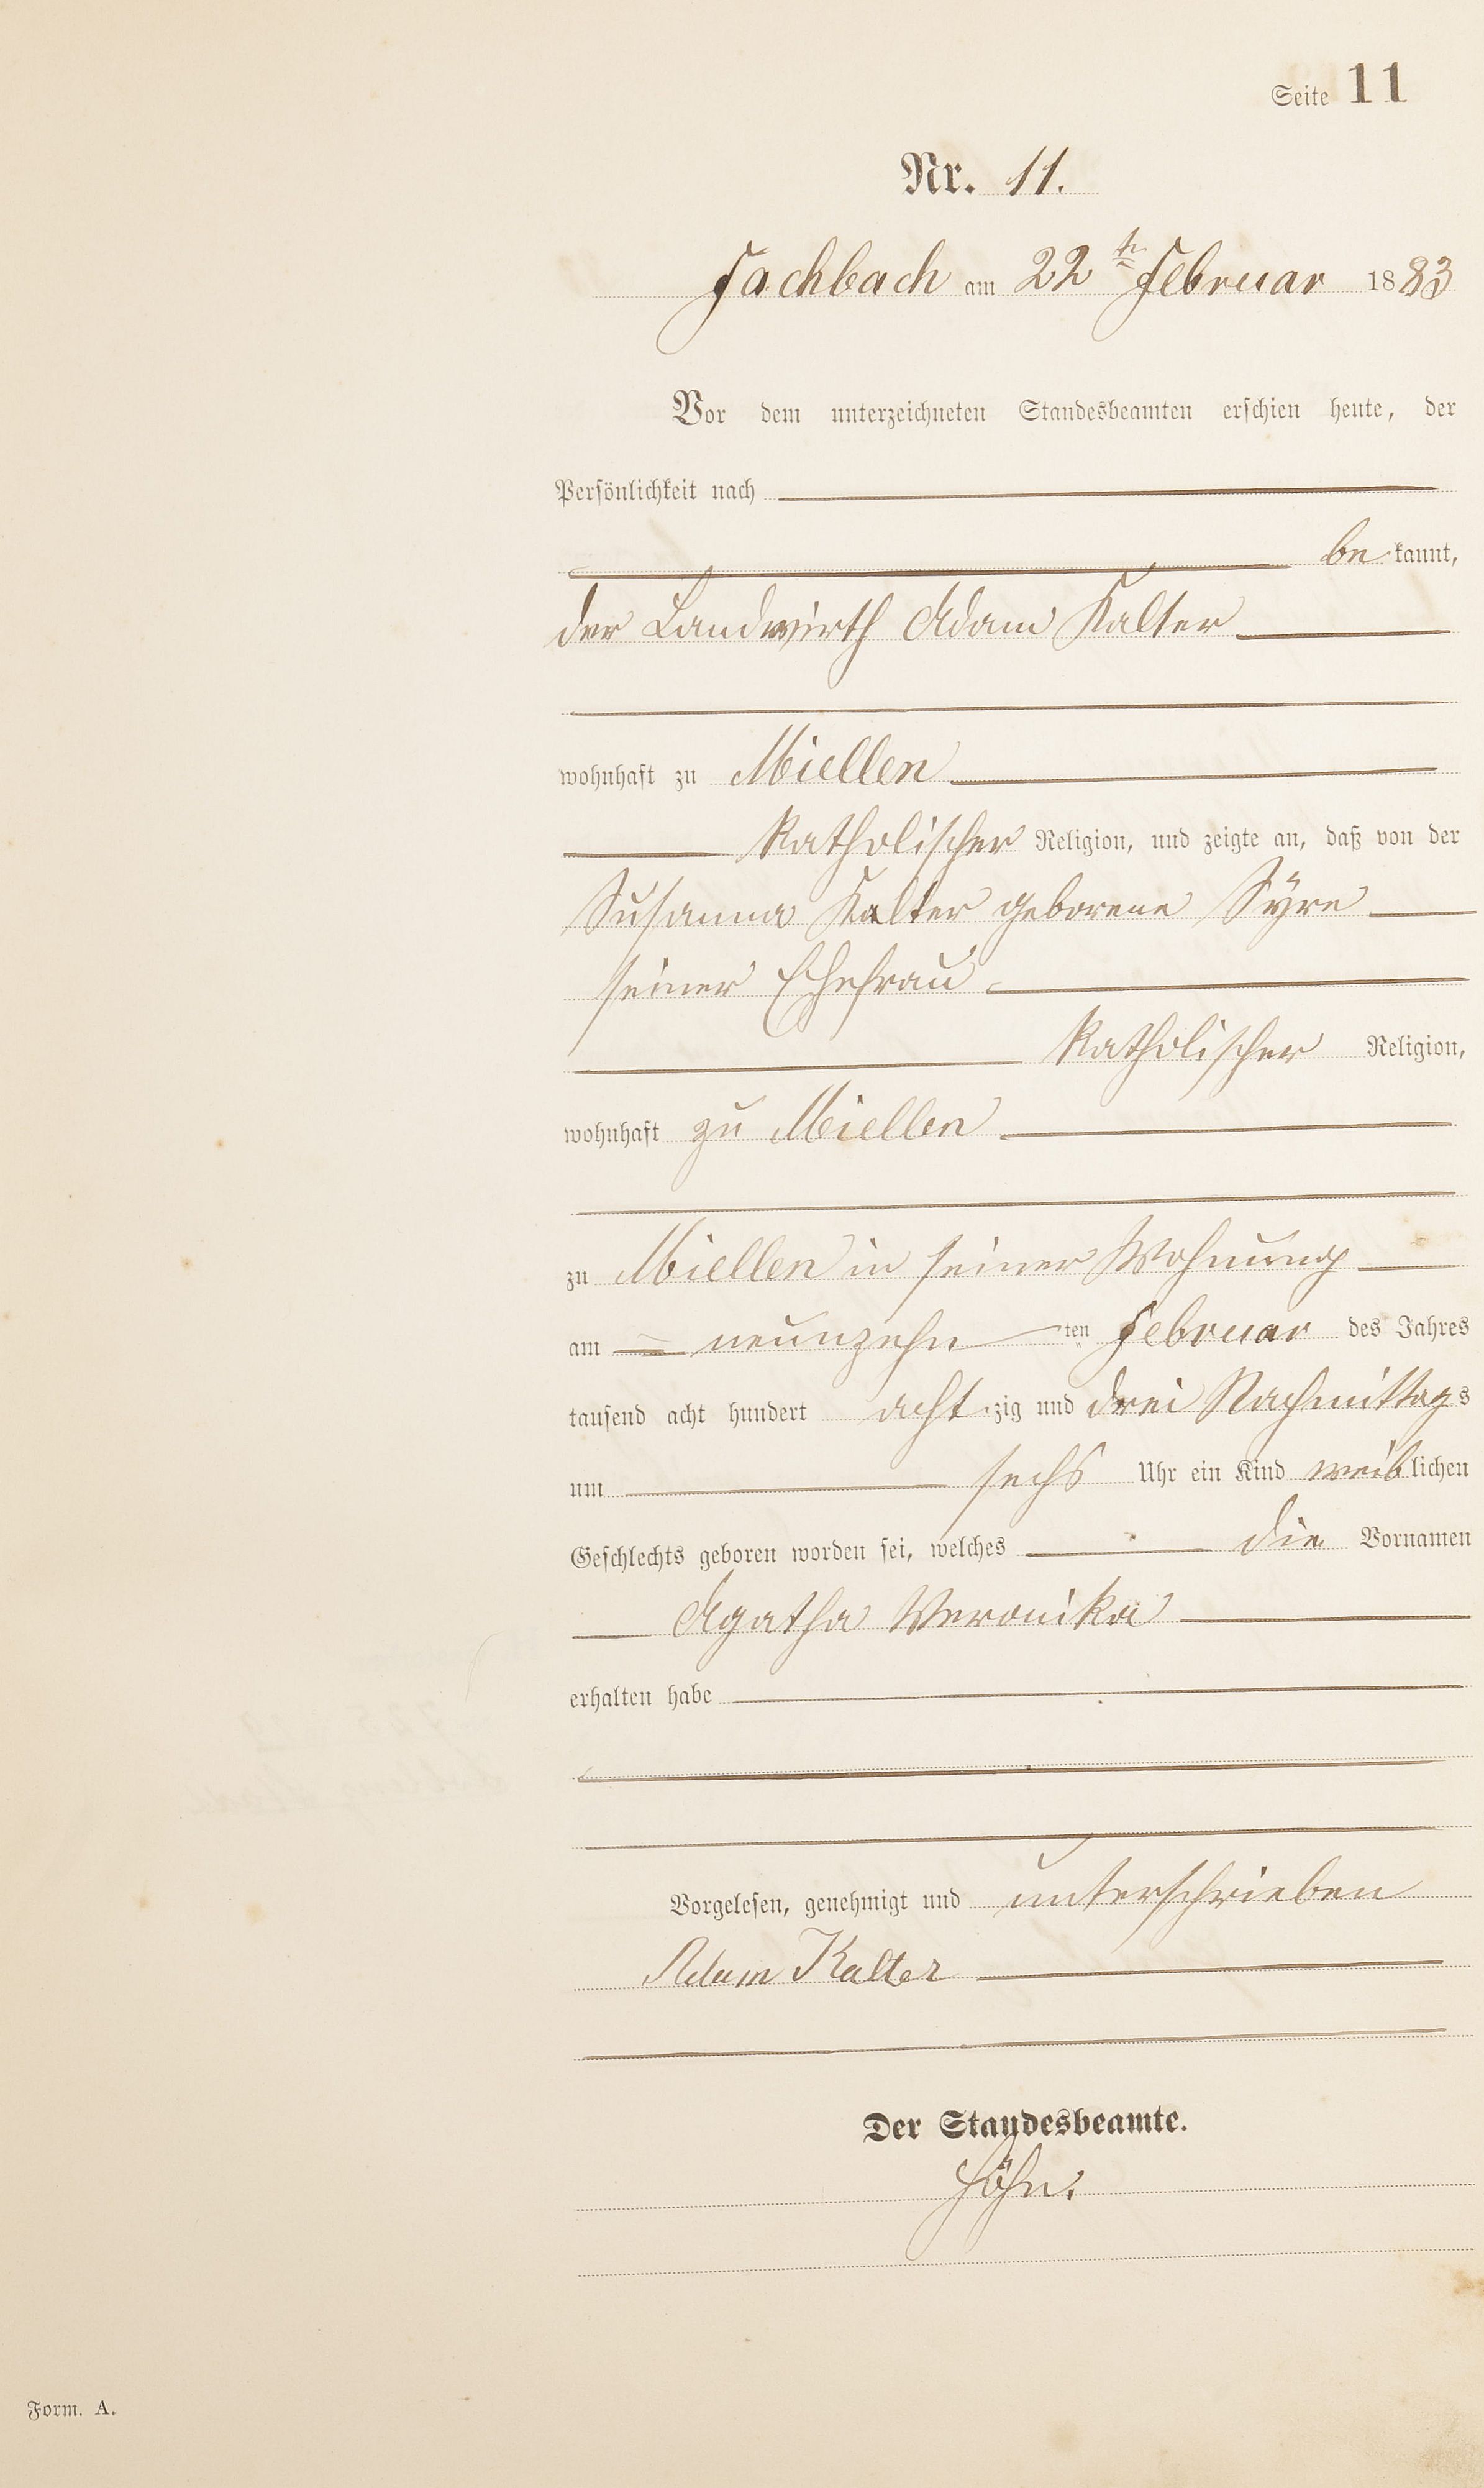 Seite 11
Nr. 11.
Fachbach am 22ten Februar 1883
Vor dem unterzeichneten Standesbeamten erschien heute, der
Persönlichkeit nach
bekannt,
der Landwirth Adam Kalter
wohnhaft zu Miellen
Katholischer Religion, und zeigte an, daß von der
Susanna Kalter geborene Syre
seiner Ehefrau
Katholischer Religion,
wohnhaft zu Miellen
zu Miellen in seiner Wohnung
am neunzehnten Februar des Jahres
tausend acht hundert achtzig und drei Nachmittags
um sechs Uhr ein Kind weiblichen
Geschlechts geboren worden sei, welches die Vornamen
Agatha Veronika
erhalten habe
Vorgelesen, genehmigt und unterschrieben
Adam Kalter
Der Standesbeamte.
Höhn.
Form. A.